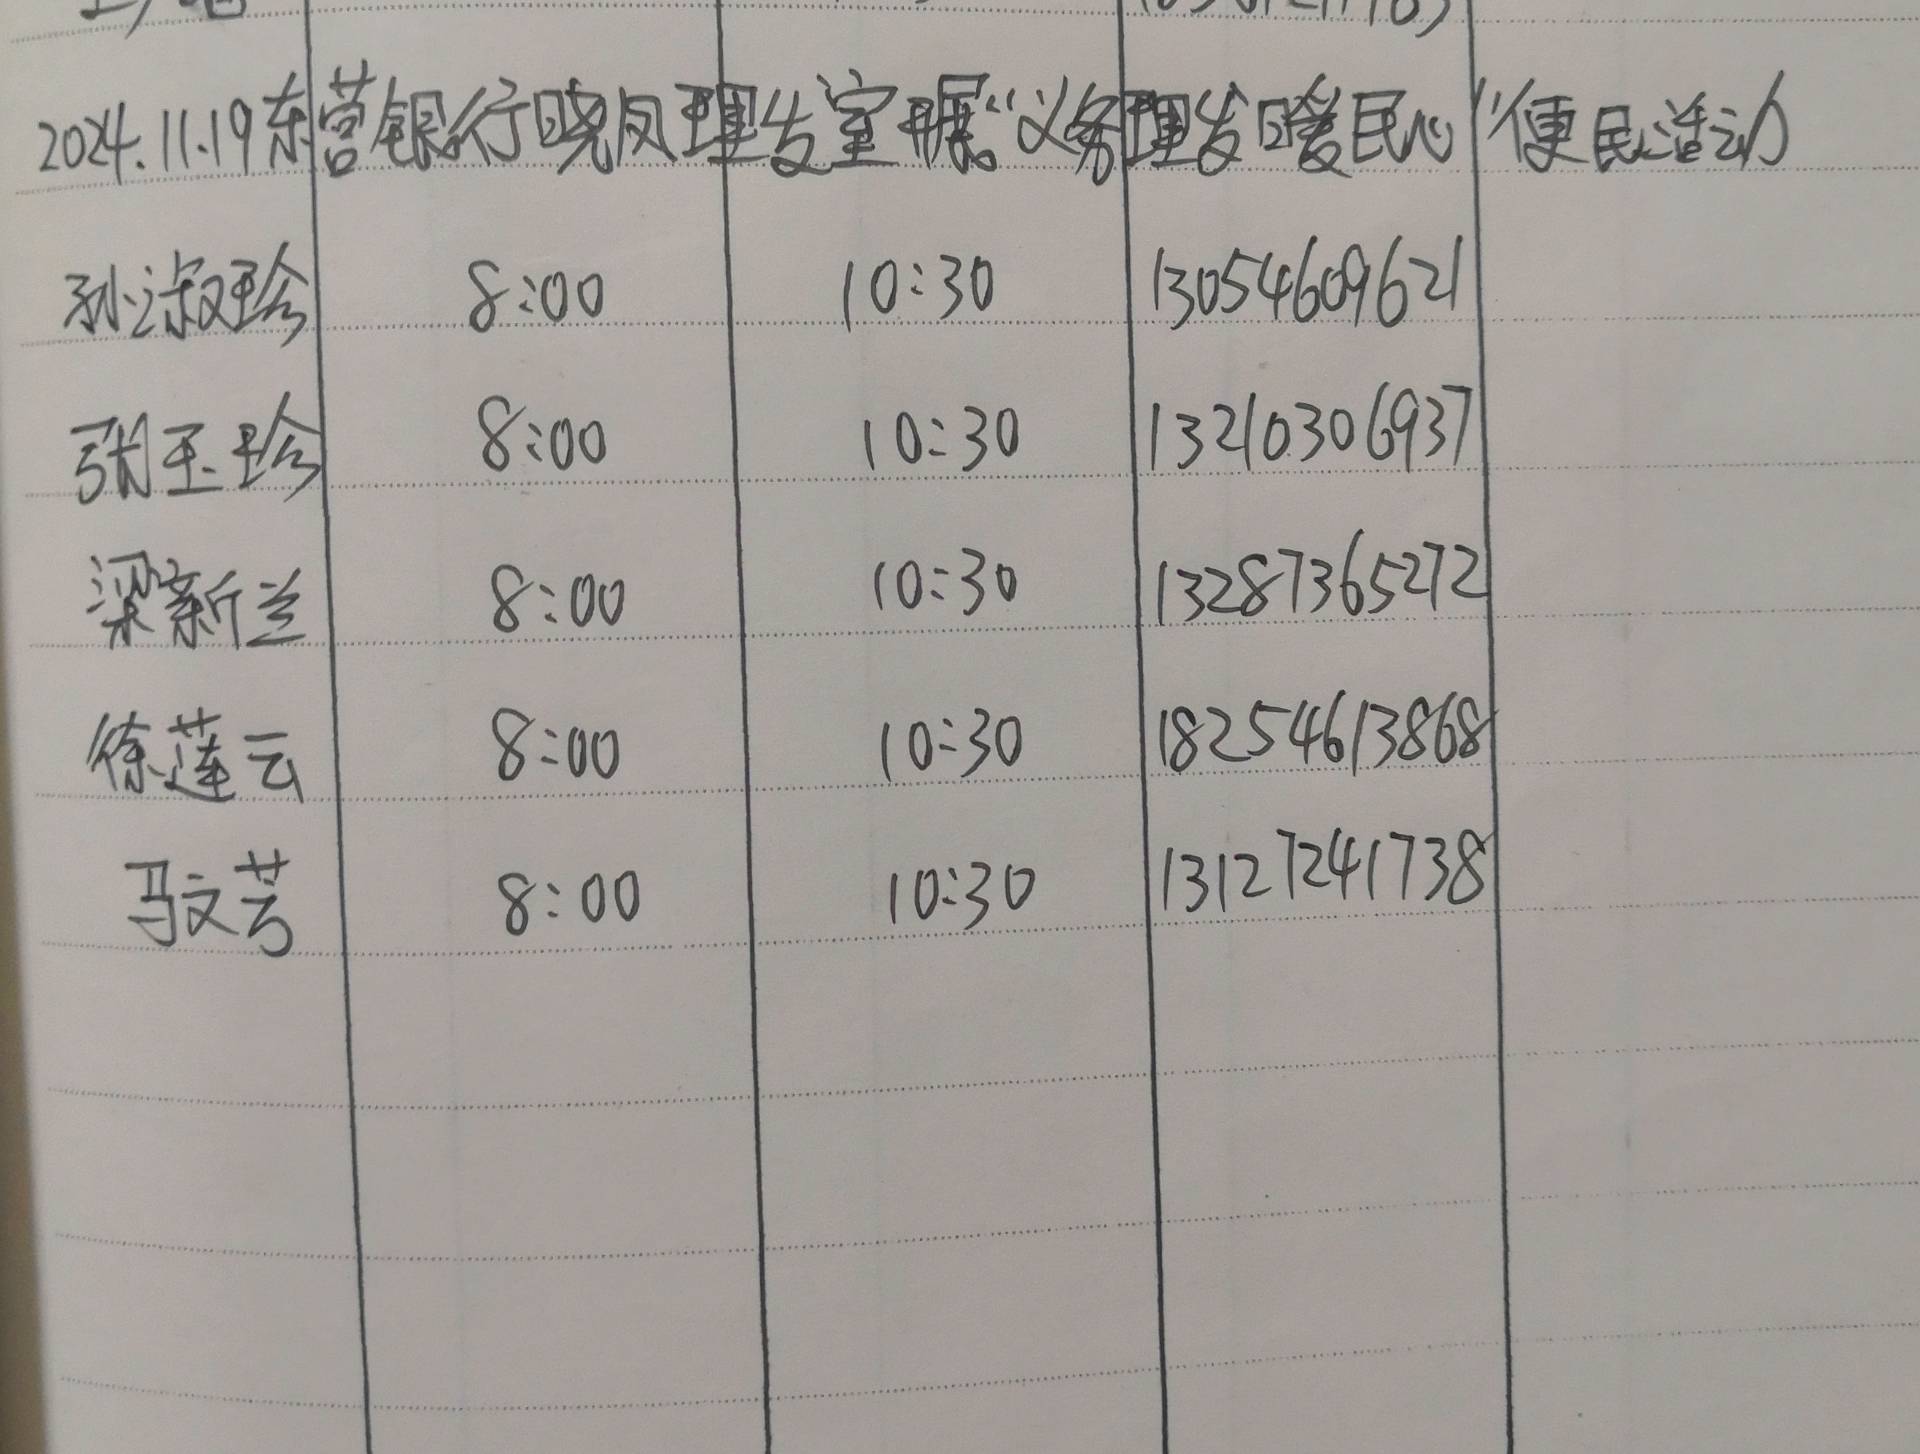 2024.11.19东营银行晓凤理发室开展“义务理发暖民心”便民活动
孙淑珍 8:00 10:30 13054609621
张玉珍 8:00 10:30 13210306937
梁新兰 8:00 10:30 13287365272
徐莲云 8:00 10:30 18254613868
马文芳 8:00 10:30 13127241738